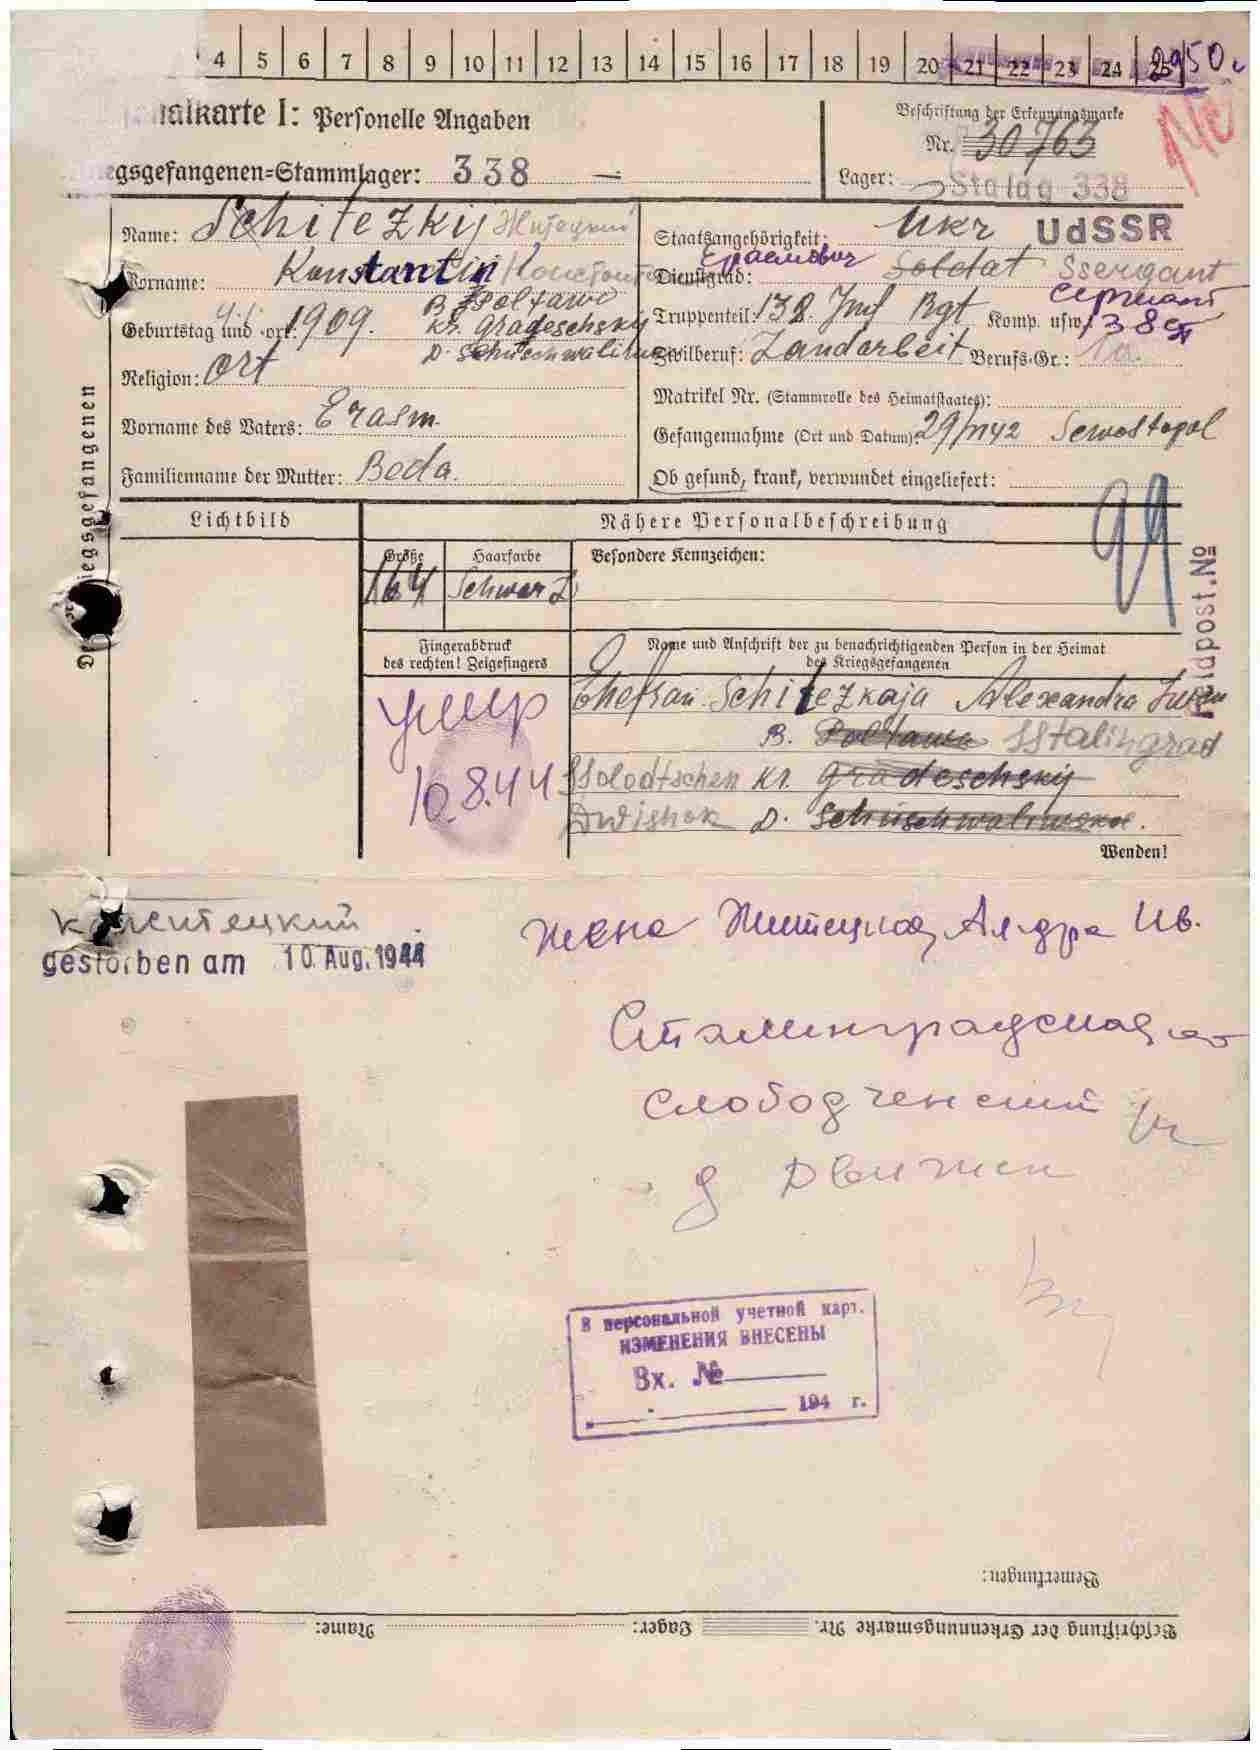 4 5 6 7 8 9 10 11 12 13 14 15 16 17 18 19 20 21 22 23 24 25
alkarte I: Personelle Angaben
Beschriftung der Erkennungsmarke
Nr. 30763
iegsgefangenen-Stammlager: 338 —
Lager: Stalag 338
Name: Schitezkij Житецкий
Vorname: Konstantin
Geburtstag und -ort: 1909. B Poltawa
kr. Gradeschsky
Religion: Ort
Vorname des Vaters: Erasm.
Familienname der Mutter: Beda.
Staatsangehörigkeit: Ukr UdSSR
Ерасмович
Dienstgrad: Soldat Ssergant
Сержант
Truppenteil: 138. Inf Rgt Komp. usw.: 138
Zivilberuf: Landarbeit Berufs-Gr.: 1a.
Matrikel Nr. (Stammrolle des Heimatstaates):
Gefangennahme (Ort und Datum): 29/VI 42 Sewostopol
Ob gesund, krank, verwundet eingeliefert:
Des Kriegsgefangenen
Lichtbild
Nähere Personalbeschreibung
Größe
Haarfarbe
Besondere Kennzeichen:
164
Schwarz
99
Feldpost.№
Fingerabdruck
des rechten! Zeigefingers
Name und Anschrift der zu benachrichtigenden Person in der Heimat
des Kriegsgefangenen
умер
10.8.44
Ehefrau Schitezkaja Alexandra
B. Poltawa SStalingrad
SSolodtschen kr. Gradeschsky
Dwishok D.
Wenden!
gestorben am 10. Aug. 1944
жена Житецкая Ал-дра Ив.
Сталинградская
Слободченский
д Движен
В персональной учетной карт.
ИЗМЕНЕНИЯ ВНЕСЕНЫ
Вх. №
194 г.
Bemerkungen:
Beschriftung der Erkennungsmarke Nr. Lager: Name: